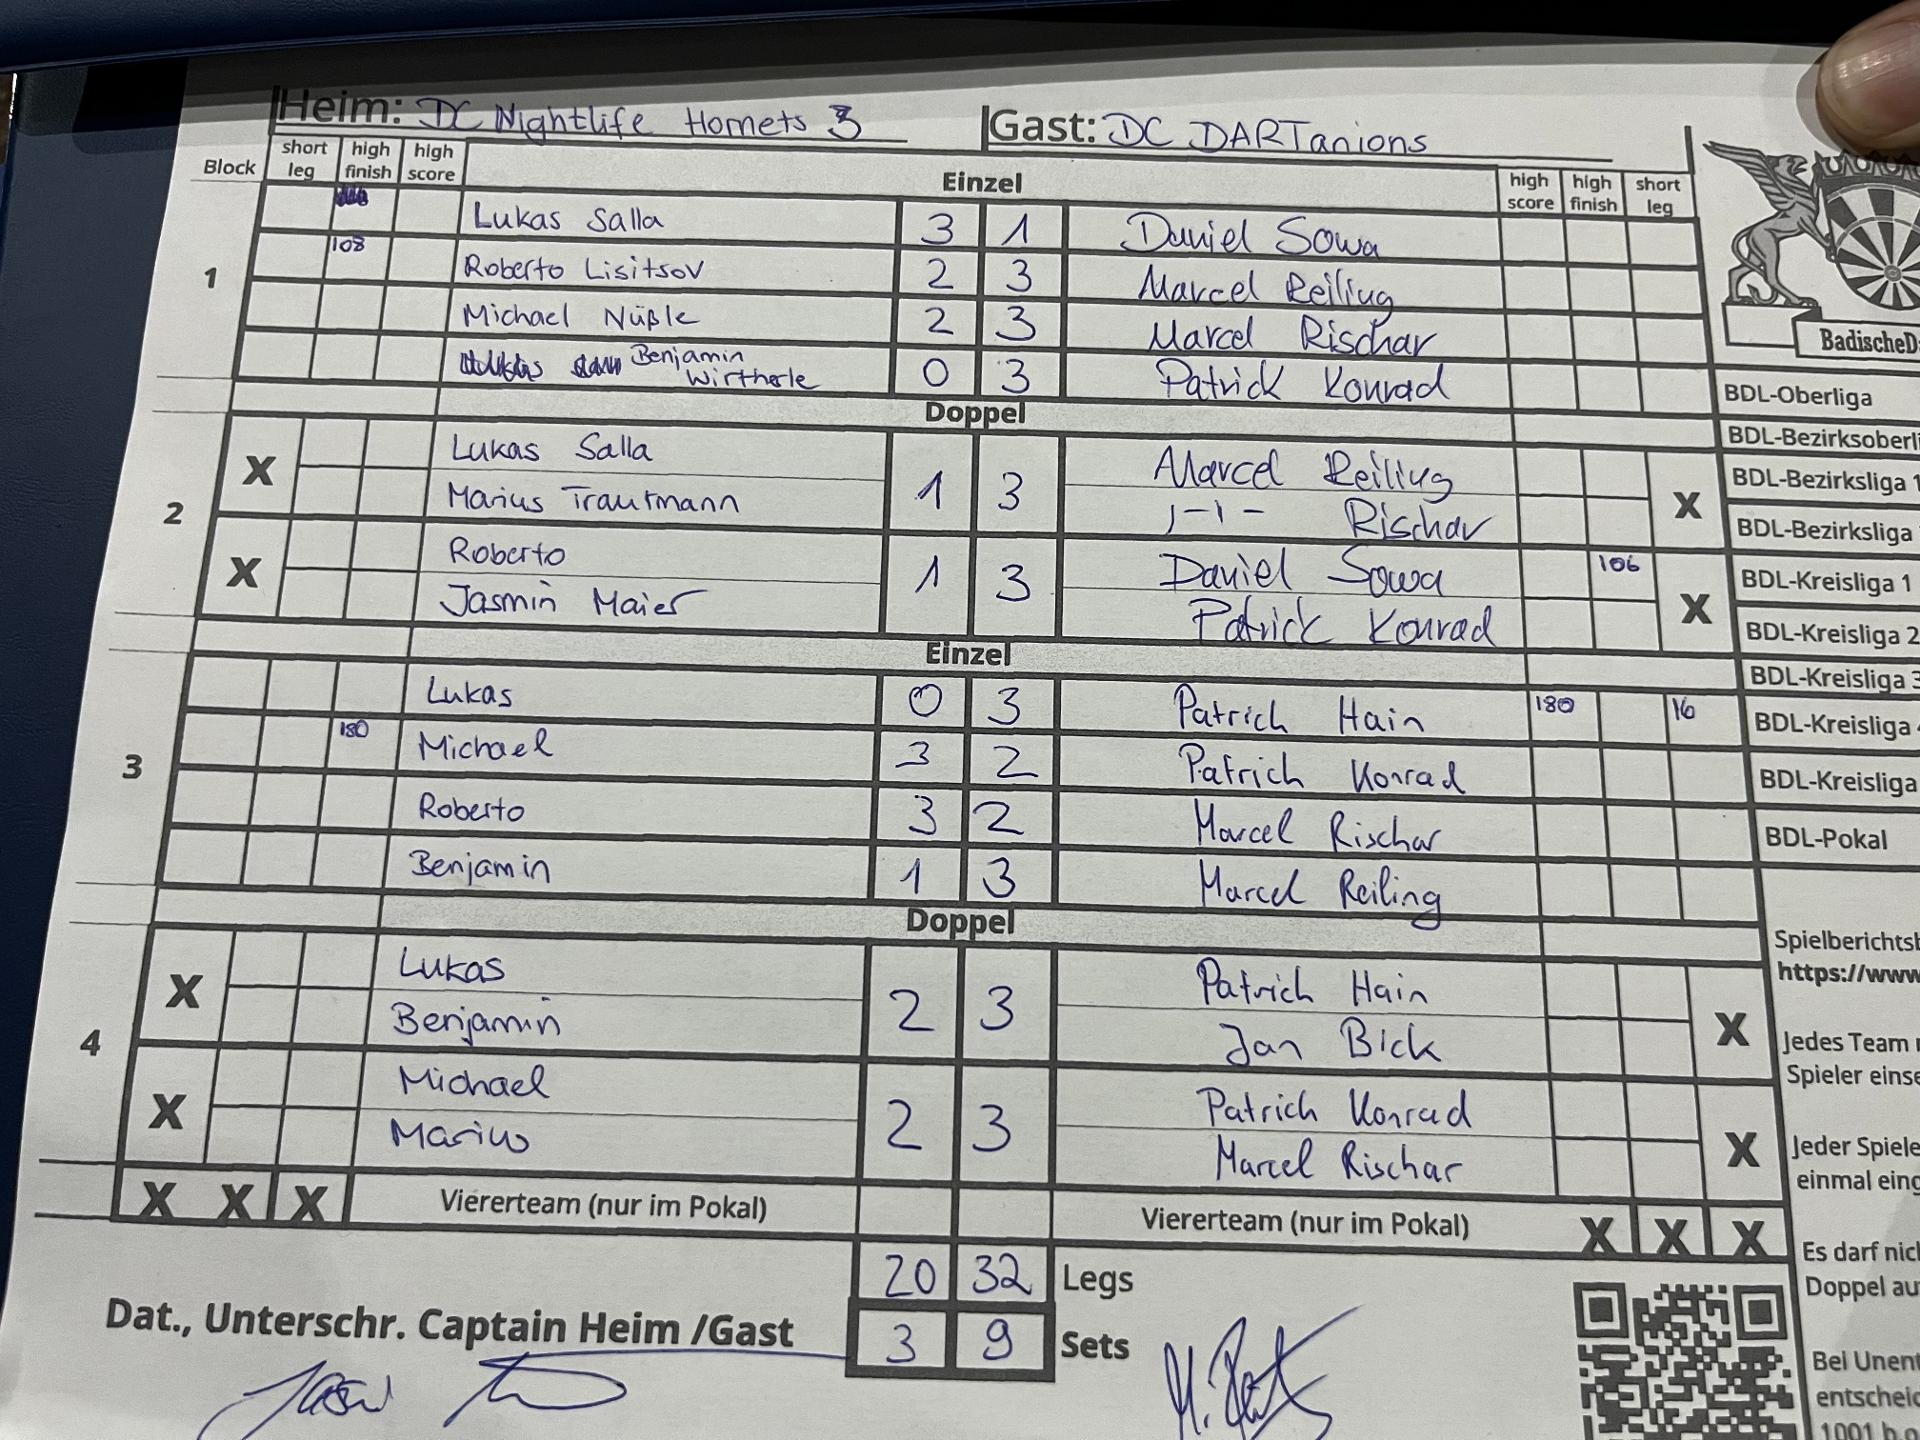 Heim: DC Nightlife Hornets 3 Gast: DC DARTanions
Block short leg high finish high score Einzel high score high finish short leg
1
Lukas Salla 3 1 Daniel Sowa
108 Roberto Lisitsov 2 3 Marcel Reiling
Michael Nüßle 2 3 Marcel Rischar
Benjamin Wirtherle 0 3 Patrick Konrad
Doppel
2
X Lukas Salla 1 3 Marcel Reiling X
Marius Trautmann -1- Rischar
X Roberto 1 3 Daniel Sowa 106 X
Jasmin Maier Patrick Konrad
Einzel
3
Lukas 0 3 Patrich Hain 180 16
180 Michael 3 2 Patrich Konrad
Roberto 3 2 Marcel Rischar
Benjamin 1 3 Marcel Reiling
Doppel
4
X Lukas 2 3 Patrich Hain X
Benjamin Jan Bick
X Michael 2 3 Patrich Konrad X
Marius Marcel Rischar
X X X Viererteam (nur im Pokal) Viererteam (nur im Pokal) X X X
20 32 Legs
Dat., Unterschr. Captain Heim /Gast 3 9 Sets
BadischeD
BDL-Oberliga
BDL-Bezirksoberli
BDL-Bezirksliga 1
BDL-Bezirksliga
BDL-Kreisliga 1
BDL-Kreisliga 2
BDL-Kreisliga 3
BDL-Kreisliga 4
BDL-Kreisliga
BDL-Pokal
Spielberichtsb
https://www
Jedes Team
Spieler einse
Jeder Spiele
einmal eing
Es darf nich
Doppel au
Bei Unent
entscheid
1001 b.o